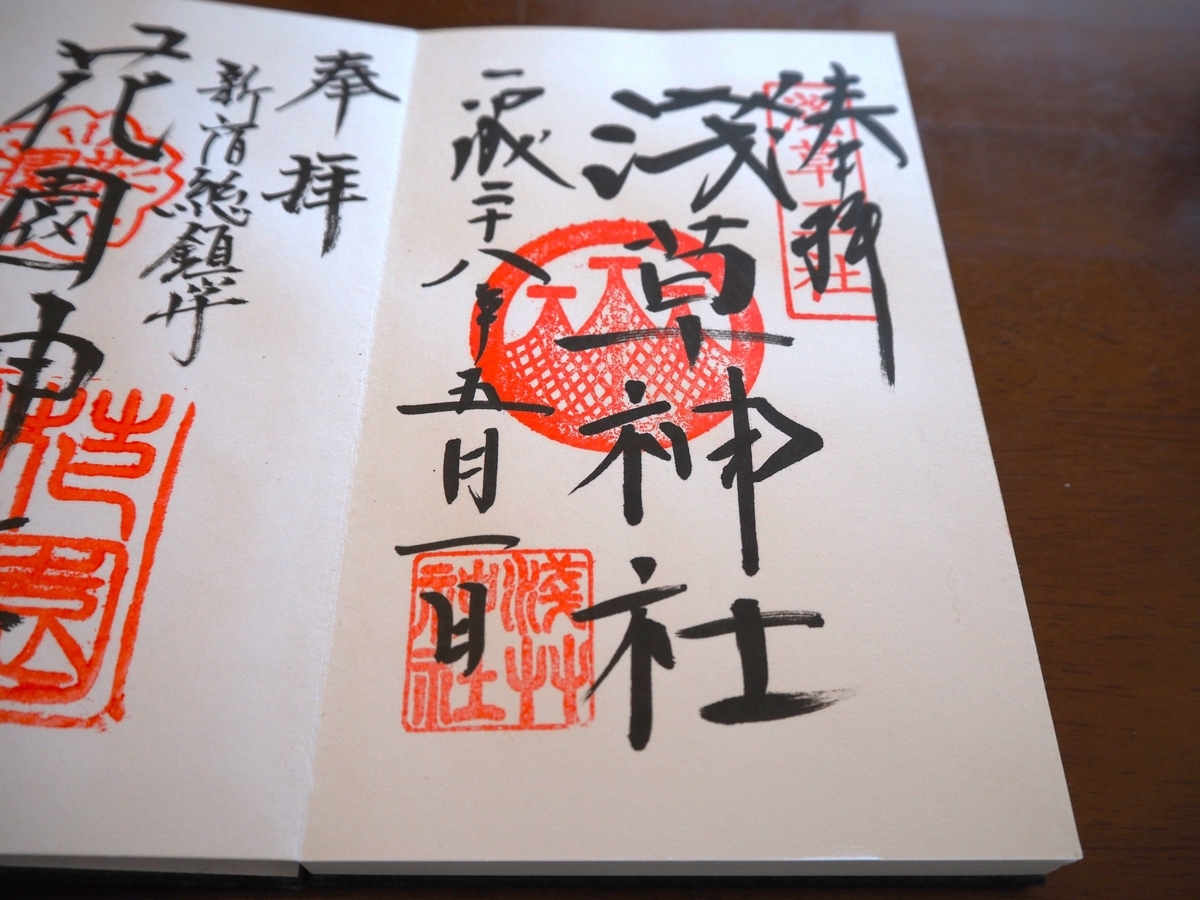 奉拝
浅草神社
平成二十八年五月一日
淺草神社
奉拝
新宿総鎮守
花園神
花園